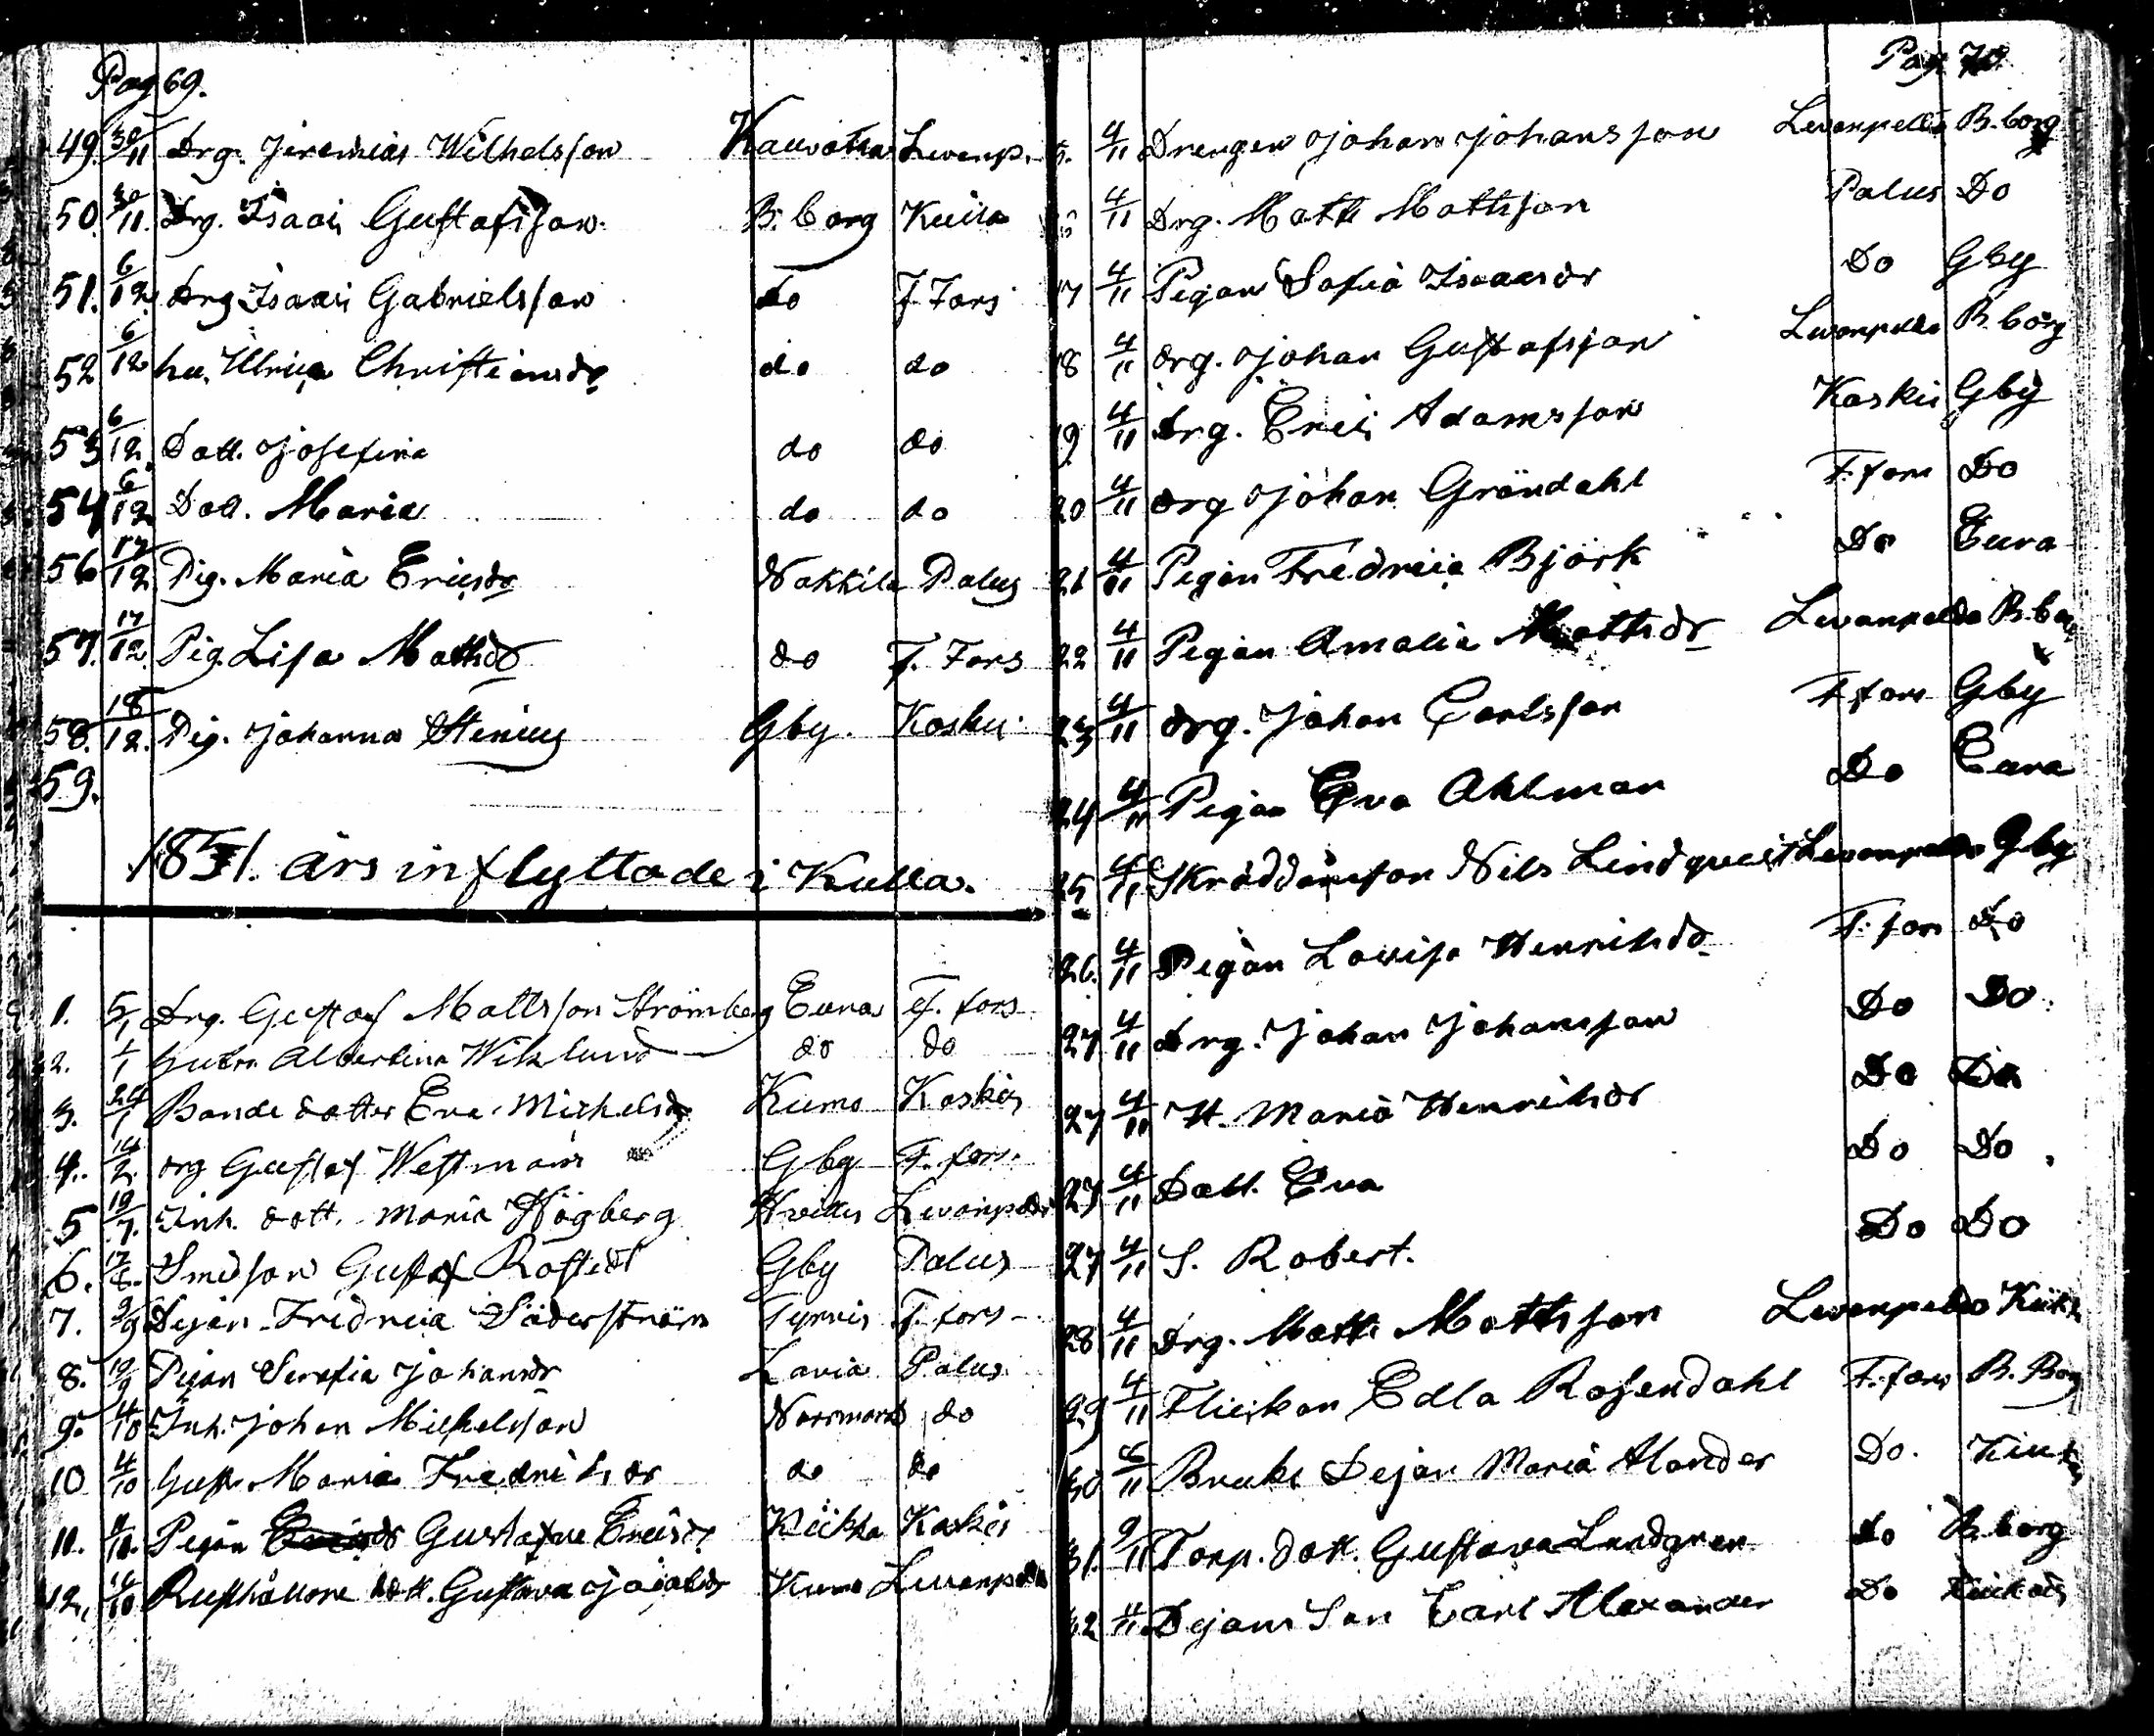 Pag 69.
49. 30/11 Drg. Jeremias Wilhelsson Kauvatsa Levanp.
50. 30/11. Drg. Isaac Gustafsson B:borg Kulla
51. 6/12. Drg Isaac Gabrielsson do F. Fors
52 6/12 hu. Ulrica Christiansdr do do
53 6/12. Dott. Josefina do do
54 6/12 Dott. Maria do do
56 17/12 Pig. Maria Ericsdr Nakkila Palus
57. 17/12. Pig. Lisa Mattsdr do F. Fors
58. 18/12. Pig. Johanna Stenius Gby. Koskis
59.
1851. års inflyttade i Kulla.
1. 5/1 Drg. Gustaf Mattsson Strömberg Eura F. fors
2. hustr. Albertina Wiklund do do
3. Bonde dotter Eva Michelsdr Kumo Koskis
4. 14/2. Drg Gustaf Westman Gby F. fors.
5 19/7. Inh. dott. Maria Högberg Hvittis Levanpelto
6. Smedson Gustaf Rostedt Gby Palus
7. 9/9 Pejan Fredrica Söderström Tyrvis F. fors
8. 19/9 Pejan Serafia Johansdr Lavia Palus
9. 4/10 Inh. Johan Michelsson Norrmark do
10 4/10 hustr. Maria Fredriksdr do do
11. Pejan Gustafva Ericsdr Kiikka Koskis
12, Rusthållare dott. Gustava Jacobsdr Kumo Levanpelto
Pag. 70
5. 4/11 Drengen Johan Johansson Levanpelto B.borg
4/11 Drg. Matts Mattsson Palus Do
17 4/11 Pigan Sofia Isaacsdr Do Gby
18 4/11 Drg. Johan Gustafsson Levanpelto B.borg
19 4/11 Drg. Eric Adamsson Koskis Gby
20 4/11 Drg Johan Gröndahl F. fors Do
21 4/11 Pigan Fredrica Björk Do Eura
22 4/11 Pigan Amalia Mattsdr Levanpelto B.borg
23 4/11 Drg. Johan Carlsson F. fors Gby
24 4/11 Pigan Eva Ahlman Do Eura
25 4/11 Skräddareson Nils Lindqvist Levanpelto Gby
26. 4/11 Pigan Lovisa Henriksdr F. fors Do
27 4/11 Drg. Johan Johansson Do Do.
27 4/11 H. Maria Henriksdr Do Do
27 4/11 Dott. Eva Do Do
27 4/11 S. Robert. Do Do
28 4/11 Drg. Matts Mattsson Levanpelto
29 4/11 Flickan Edla Rosendahl F. fors B. Borg
30 Bruks Pejan Maria Alander Do.
31. 9/11 Torp. dott. Gustava Lundgren do B. borg
32 Pejans Son Carl Alexander Do